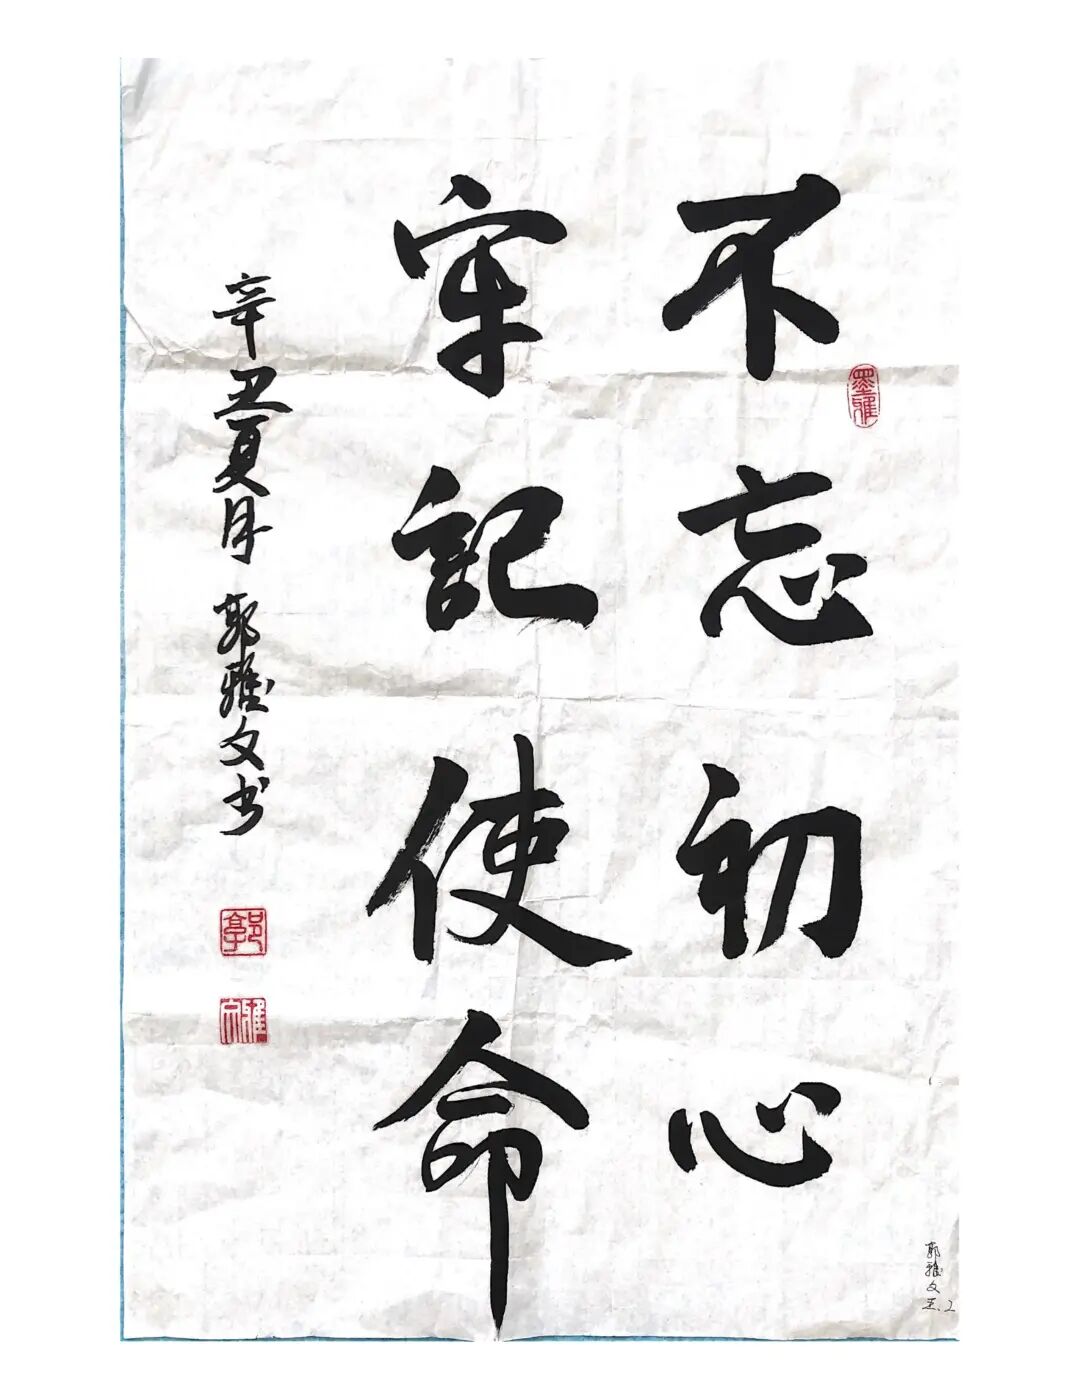 不忘初心
牢記使命
辛丑夏月 郭雅文书
墨雅
郭
雅文
郭雅文